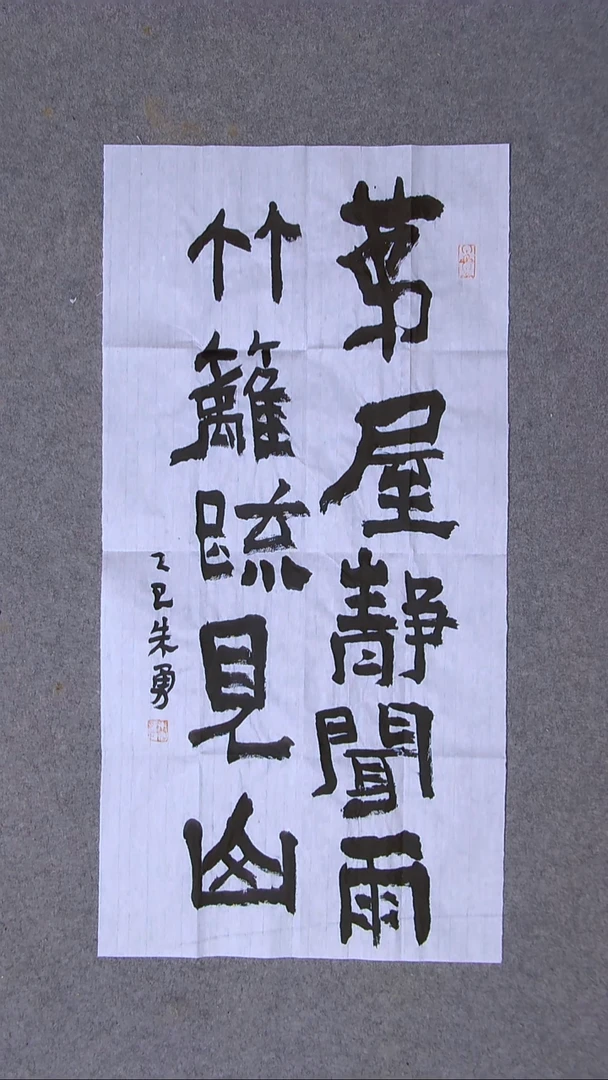 茅屋静聞雨
竹籬疏見山
乙巳朱勇